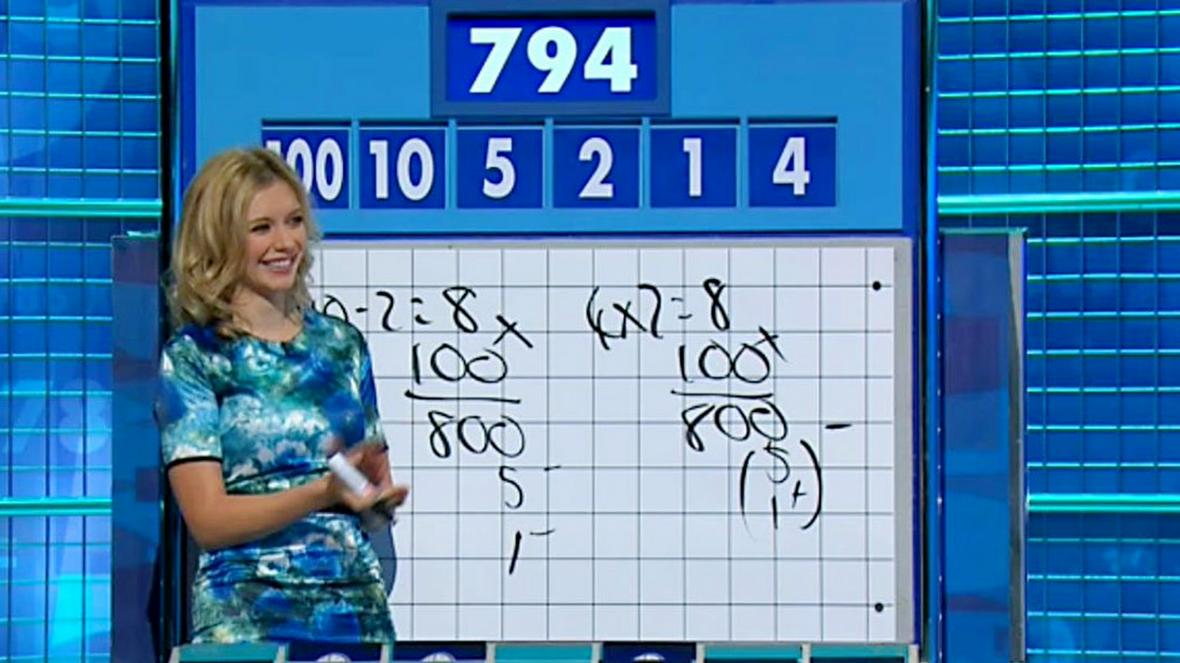 794
100 10 5 2 1 4
10-2=8 x
100
800
5 -
1 -
4x2=8
100 x
800 -
(5
1+)